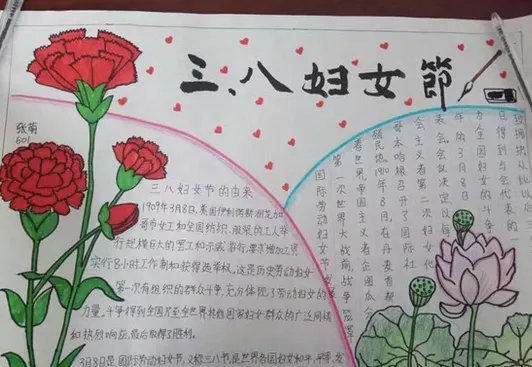 三、八妇女節
张萌
601
三八妇女节的由来
1909年3月8日，美国伊利诺斯州芝加
哥市女工和全国纺织、服装的工人举
行规模巨大的罢工和示威游行，要求增加工资
实行8小时工作制和获得选举权，这是历史劳动妇女
第一次有组织的群众斗争，充分体现了劳动妇女的
力量，斗争得到全国乃至全世界其他国家妇女群众的广泛同情
和热烈响应，最后取得了胜利。
3月8日是国际劳动妇女节，又称三八节，是世界各国妇女和平、平等、发
日得到与会代表的
为全国妇女的斗争
年的3月8日
表会会议决议
会主义者第二次妇女代
哥本哈根召开了国际社
殖民地1910年8月，在丹麦首都
着世界帝国主义者企图瓜分
第一次世界大战前，战争
国际劳动妇女节